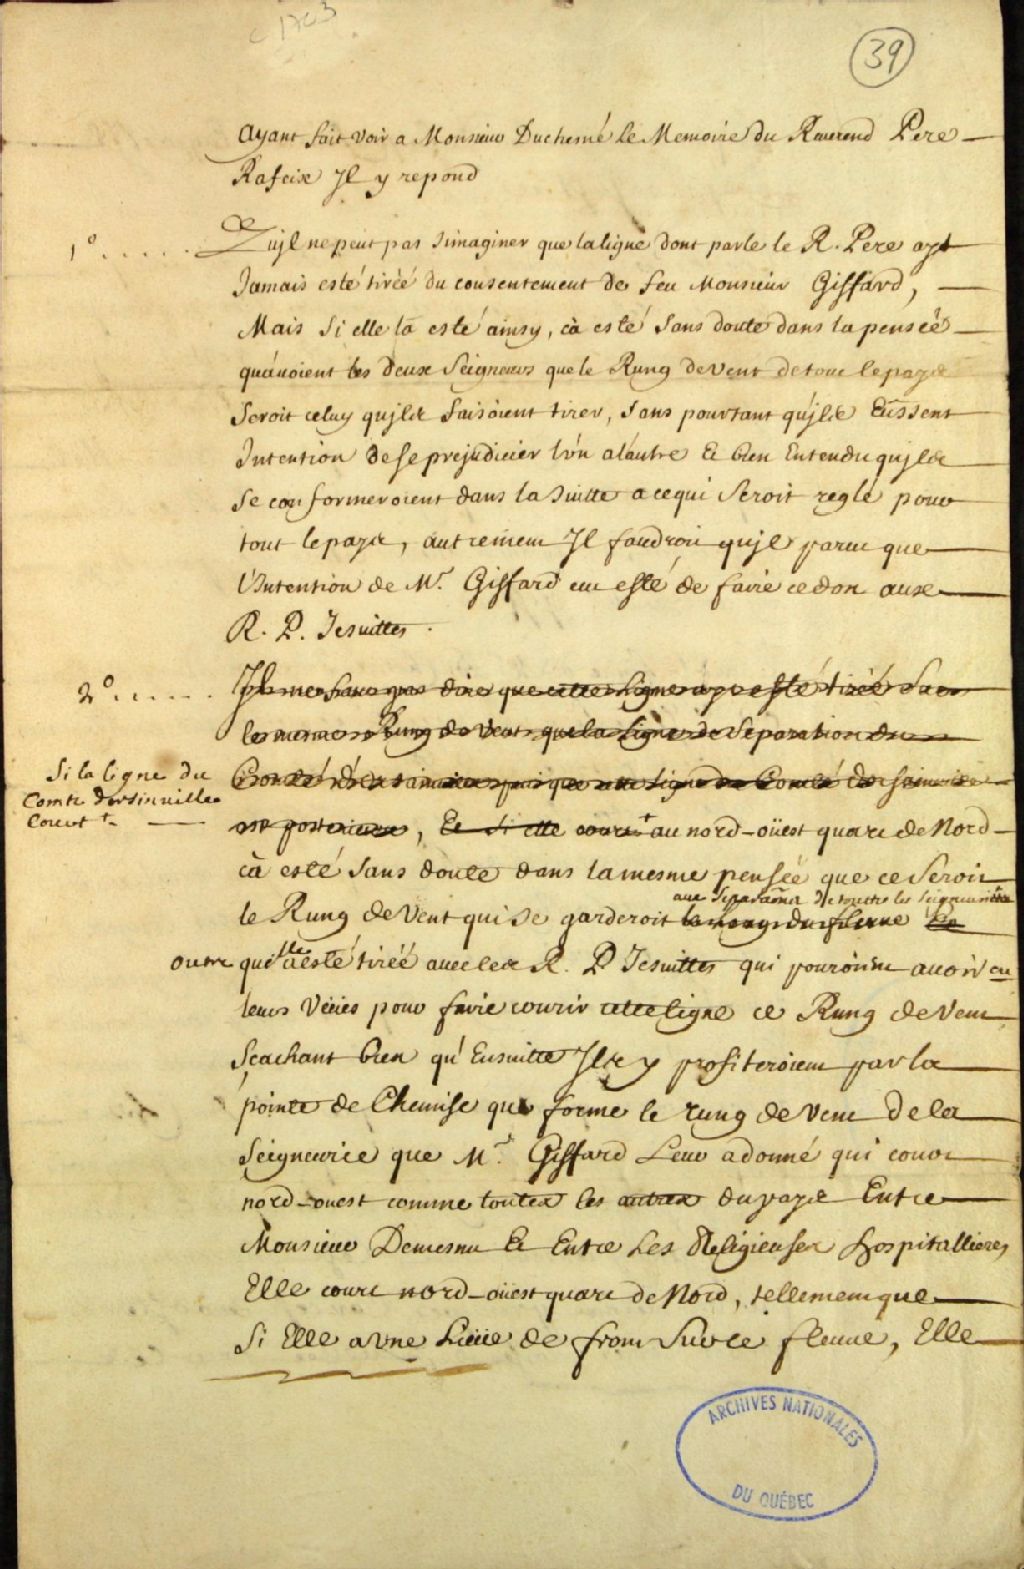 c 1703
39
Ayant fait voir a Monsieur Duchesné Le Memoire du Reuerend Pere
Rafeix Jl y repond
1° . . . . . Qujl ne peut pas simaginer que la ligne dont parle le R. Pere ayt
Jamais esté tiréé du consentement de feu Monsieur Giffard,
Mais si elle la esté ainsy, cà esté sans doute dans la penséé
quáuoient les deux Seigneurs que le Rung de vent de tout le païs
Seroit celuy qujls faisoient tirer, sans pourtant qujls Eussent
Intention de se prejudicier lún a láutre Et bien Entendu qujls
se conformeroient dans la suitte a ce qui seroit reglé pour
tout le païs, autrement Jl faudroit qujl parut que
L'Intention de Mr. Giffard eut esté de faire ce don aux
R. P. Jesuittes.
2° . . . . . Jl ne faut pas dire que cette Ligne aye esté tiréé sur
le mesme Rung de vent que la Ligne de Separation du
Comté dorsainville puisque cette ligne du Comté dorsainville
Si la ligne du
Comte dorsinville
Court +
est posterieure, Et si elle court + au nord-oüest quart de Nord
cà esté sans doute dans la mesme penséé que ce seroit
aux separaõns de toutes les seigneuries
le Rung de vent qui se garderoit le long du fleuue Et
outre quelle a esté tiréé auec les R. P Jesuittes qui pouroient auoir eu
leurs veües pour faire courir cette ligne ce Rung de vent
Scachant bien qu'Ensuitte Jls y profiteroient par la
pointe de Chemise que forme le rung de vent de la
Seigneurie que Mr. Giffard Leur a donné qui court
nord-ouest comme toutes les autres du païs Entre
Monsieur Demesnu Et Entre Les Religieuses hospitallieres
Elle court nord-oüest quart de Nord, tellement que
Si Elle a vne Lieüe de front sur le fleuue, Elle
ARCHIVES NATIONALES
DU QUÉBEC